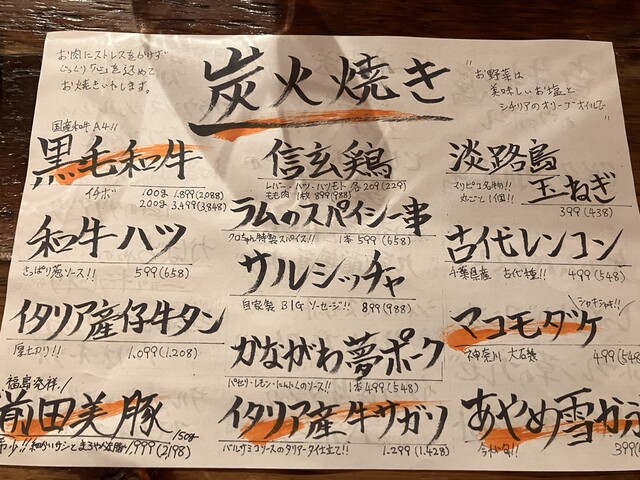 お肉にストレスをかけず
じっくり「心」を込めて
お焼きいたします。
炭火焼き
"お野菜は
美味しいお塩と
シチリアのオリーブオイルで"
国産和牛A4!!
黒毛和牛
イチボ 100g 1,899(2,088)
200g 3,499(3,848)
和牛ハツ
さっぱり葱ソース!! 599(658)
イタリア産仔牛タン
厚切り!! 1,099(1,208)
福島発祥!
前田美豚
150g
1,999(2,198)
信玄鶏
レバー・ハツ・ハツモト 各209(229)
もも肉 1枚 899(988)
ラムのスパイシー串
クロちゃん特製スパイス!! 1本 599(658)
サルシッチャ
自家製 BIGソーセージ!! 899(988)
かながわ夢ポーク
パセリ・レモン・にんにくのソース!! 1本 499(548)
イタリア産牛サガリ
バルサミコソースのタリアータ仕立て!! 1,299(1,428)
淡路島
玉ねぎ
マリピコ名物!!
丸ごと1個!!
399(438)
古代レンコン
千葉県産 古代種!! 499(548)
シャキシャキ!!
マコモダケ
神奈川 499(548
あやめ雪かぶ
今が旬!! 399(